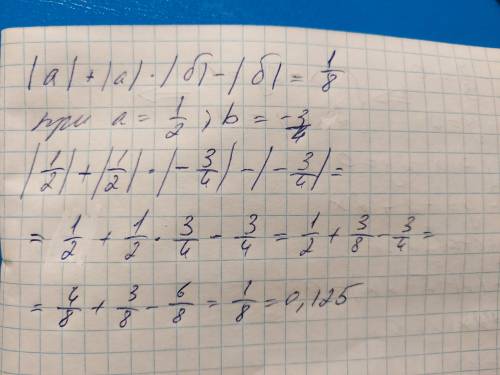 |a| + |a| · |б| - |б| = 1/8
при a = 1/2 ; b = -3/4
|1/2| + |1/2| · |-3/4| - |-3/4| =
= 1/2 + 1/2 · 3/4 - 3/4 = 1/2 + 3/8 - 3/4 =
= 4/8 + 3/8 - 6/8 = 1/8 = 0,125